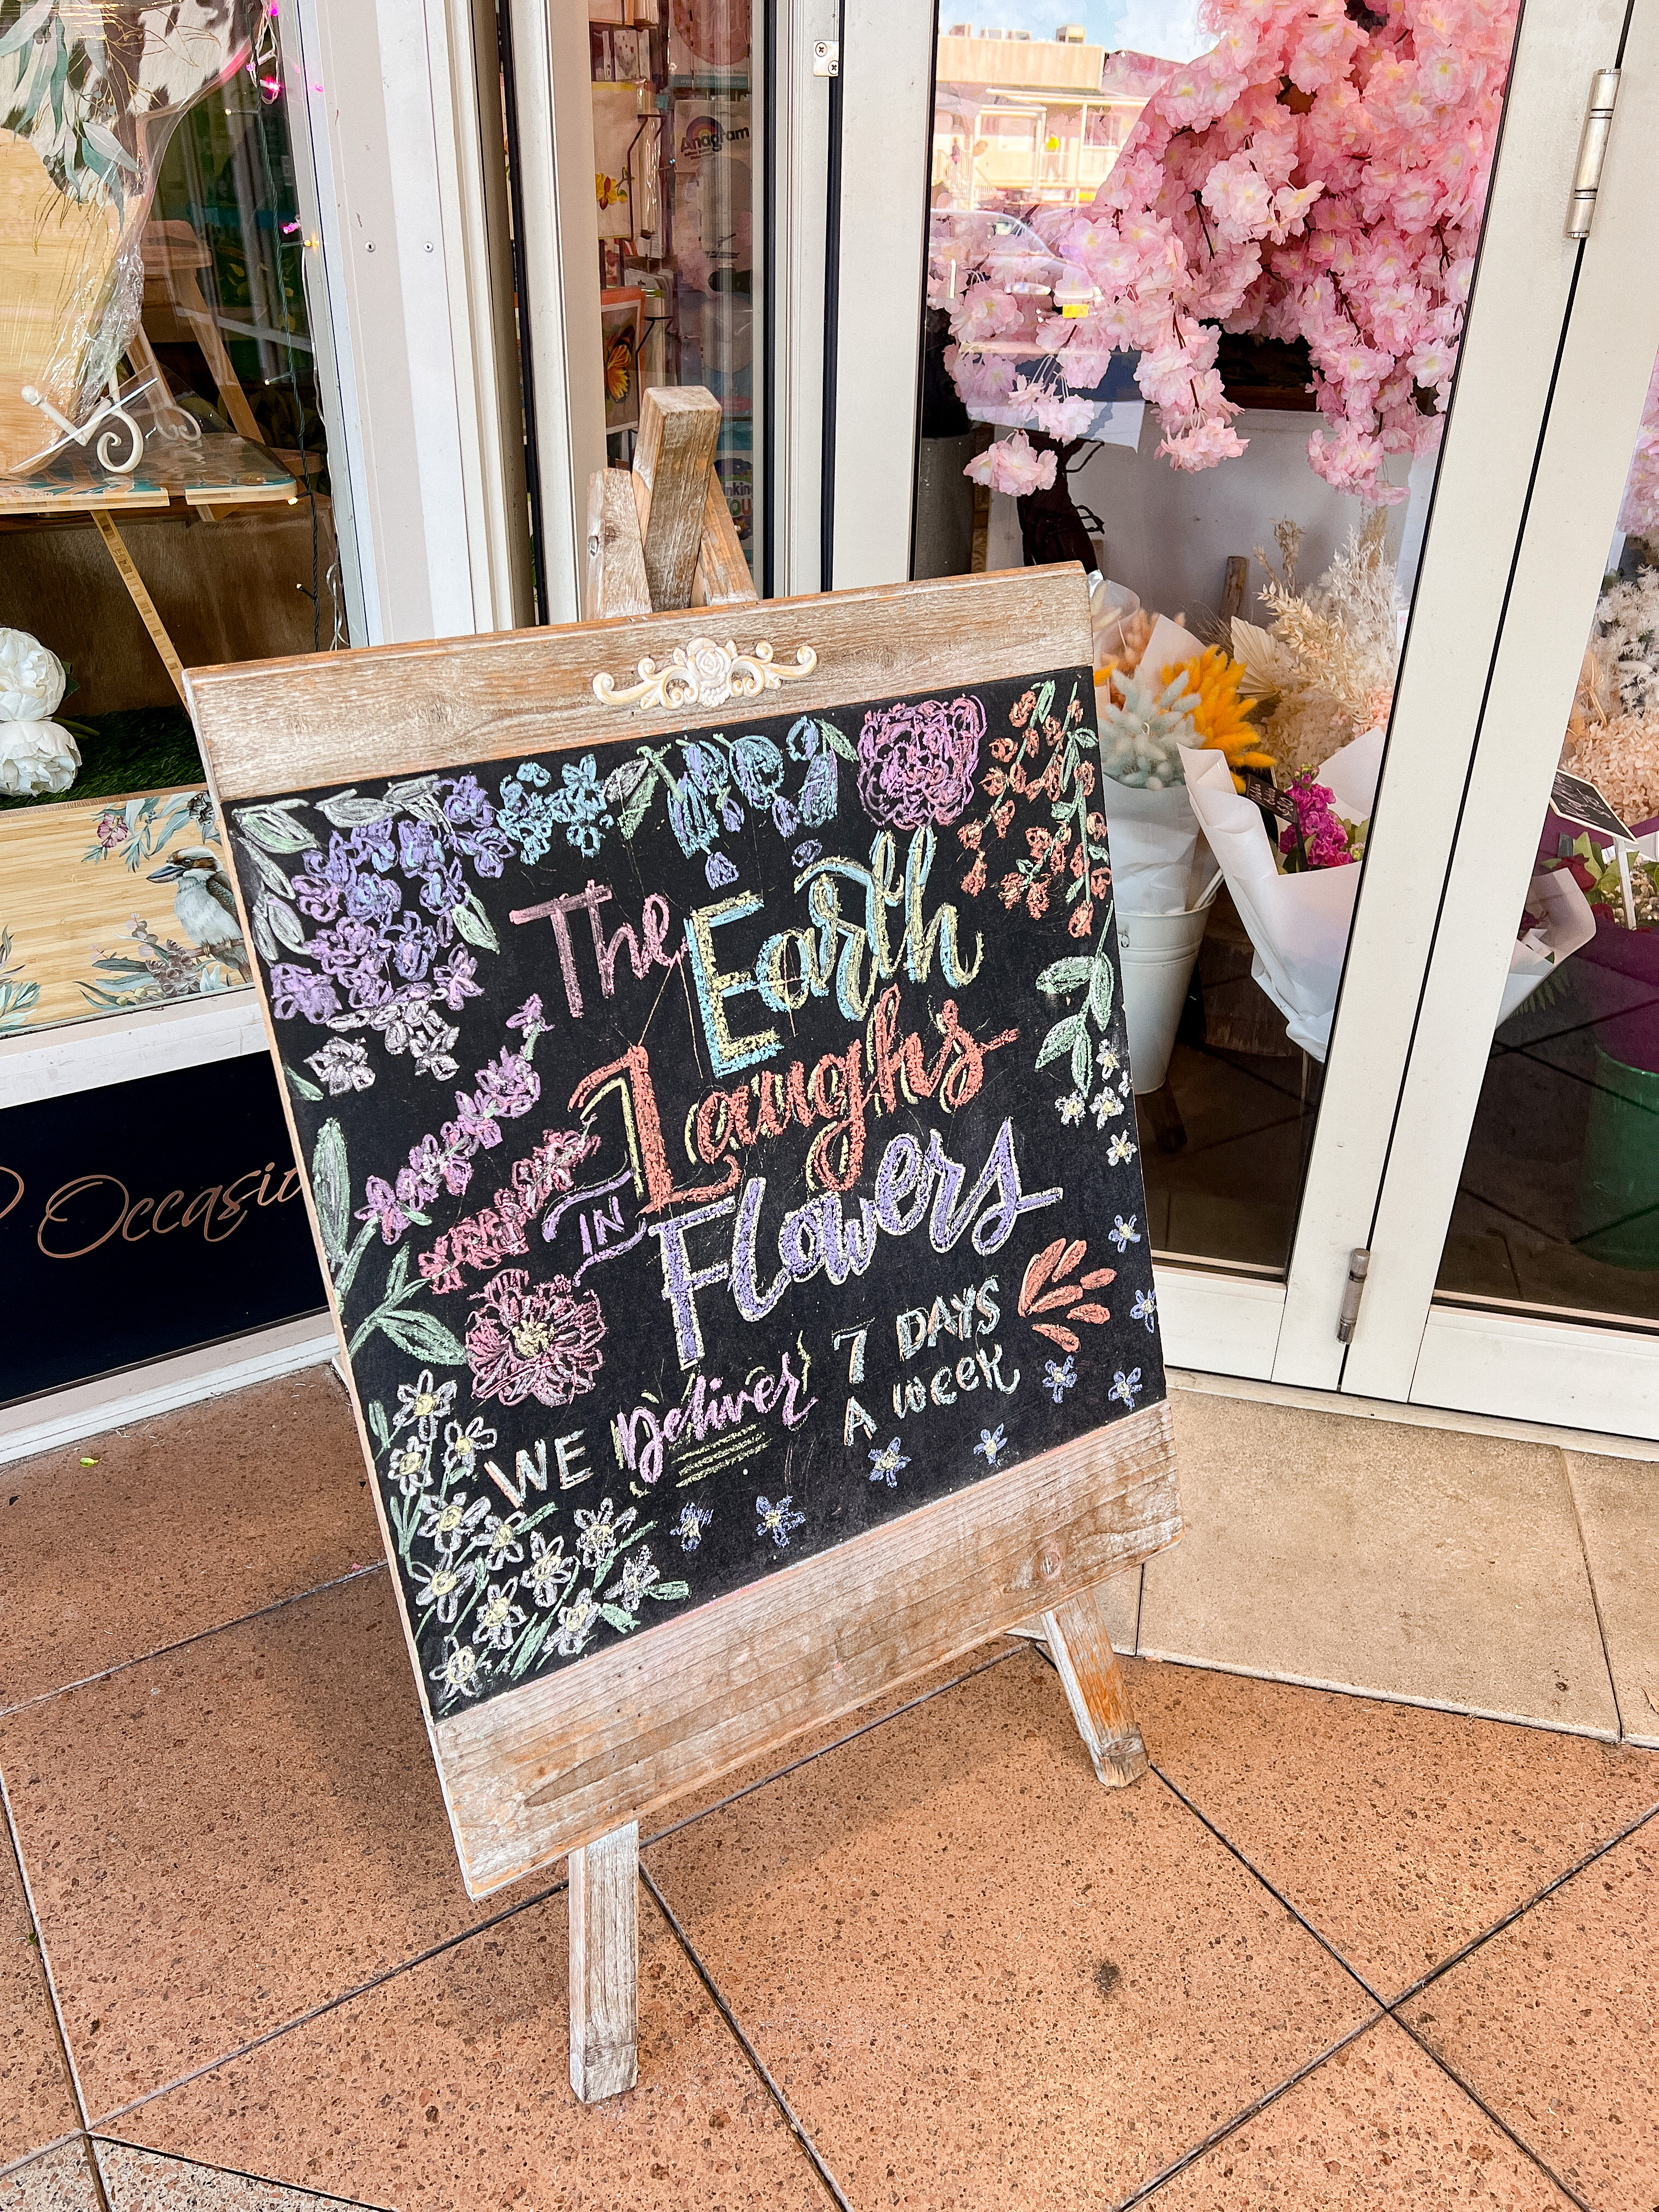 Anagram
The Earth
Laughs
IN Flowers
WE Deliver 7 DAYS
A Week
Occasio